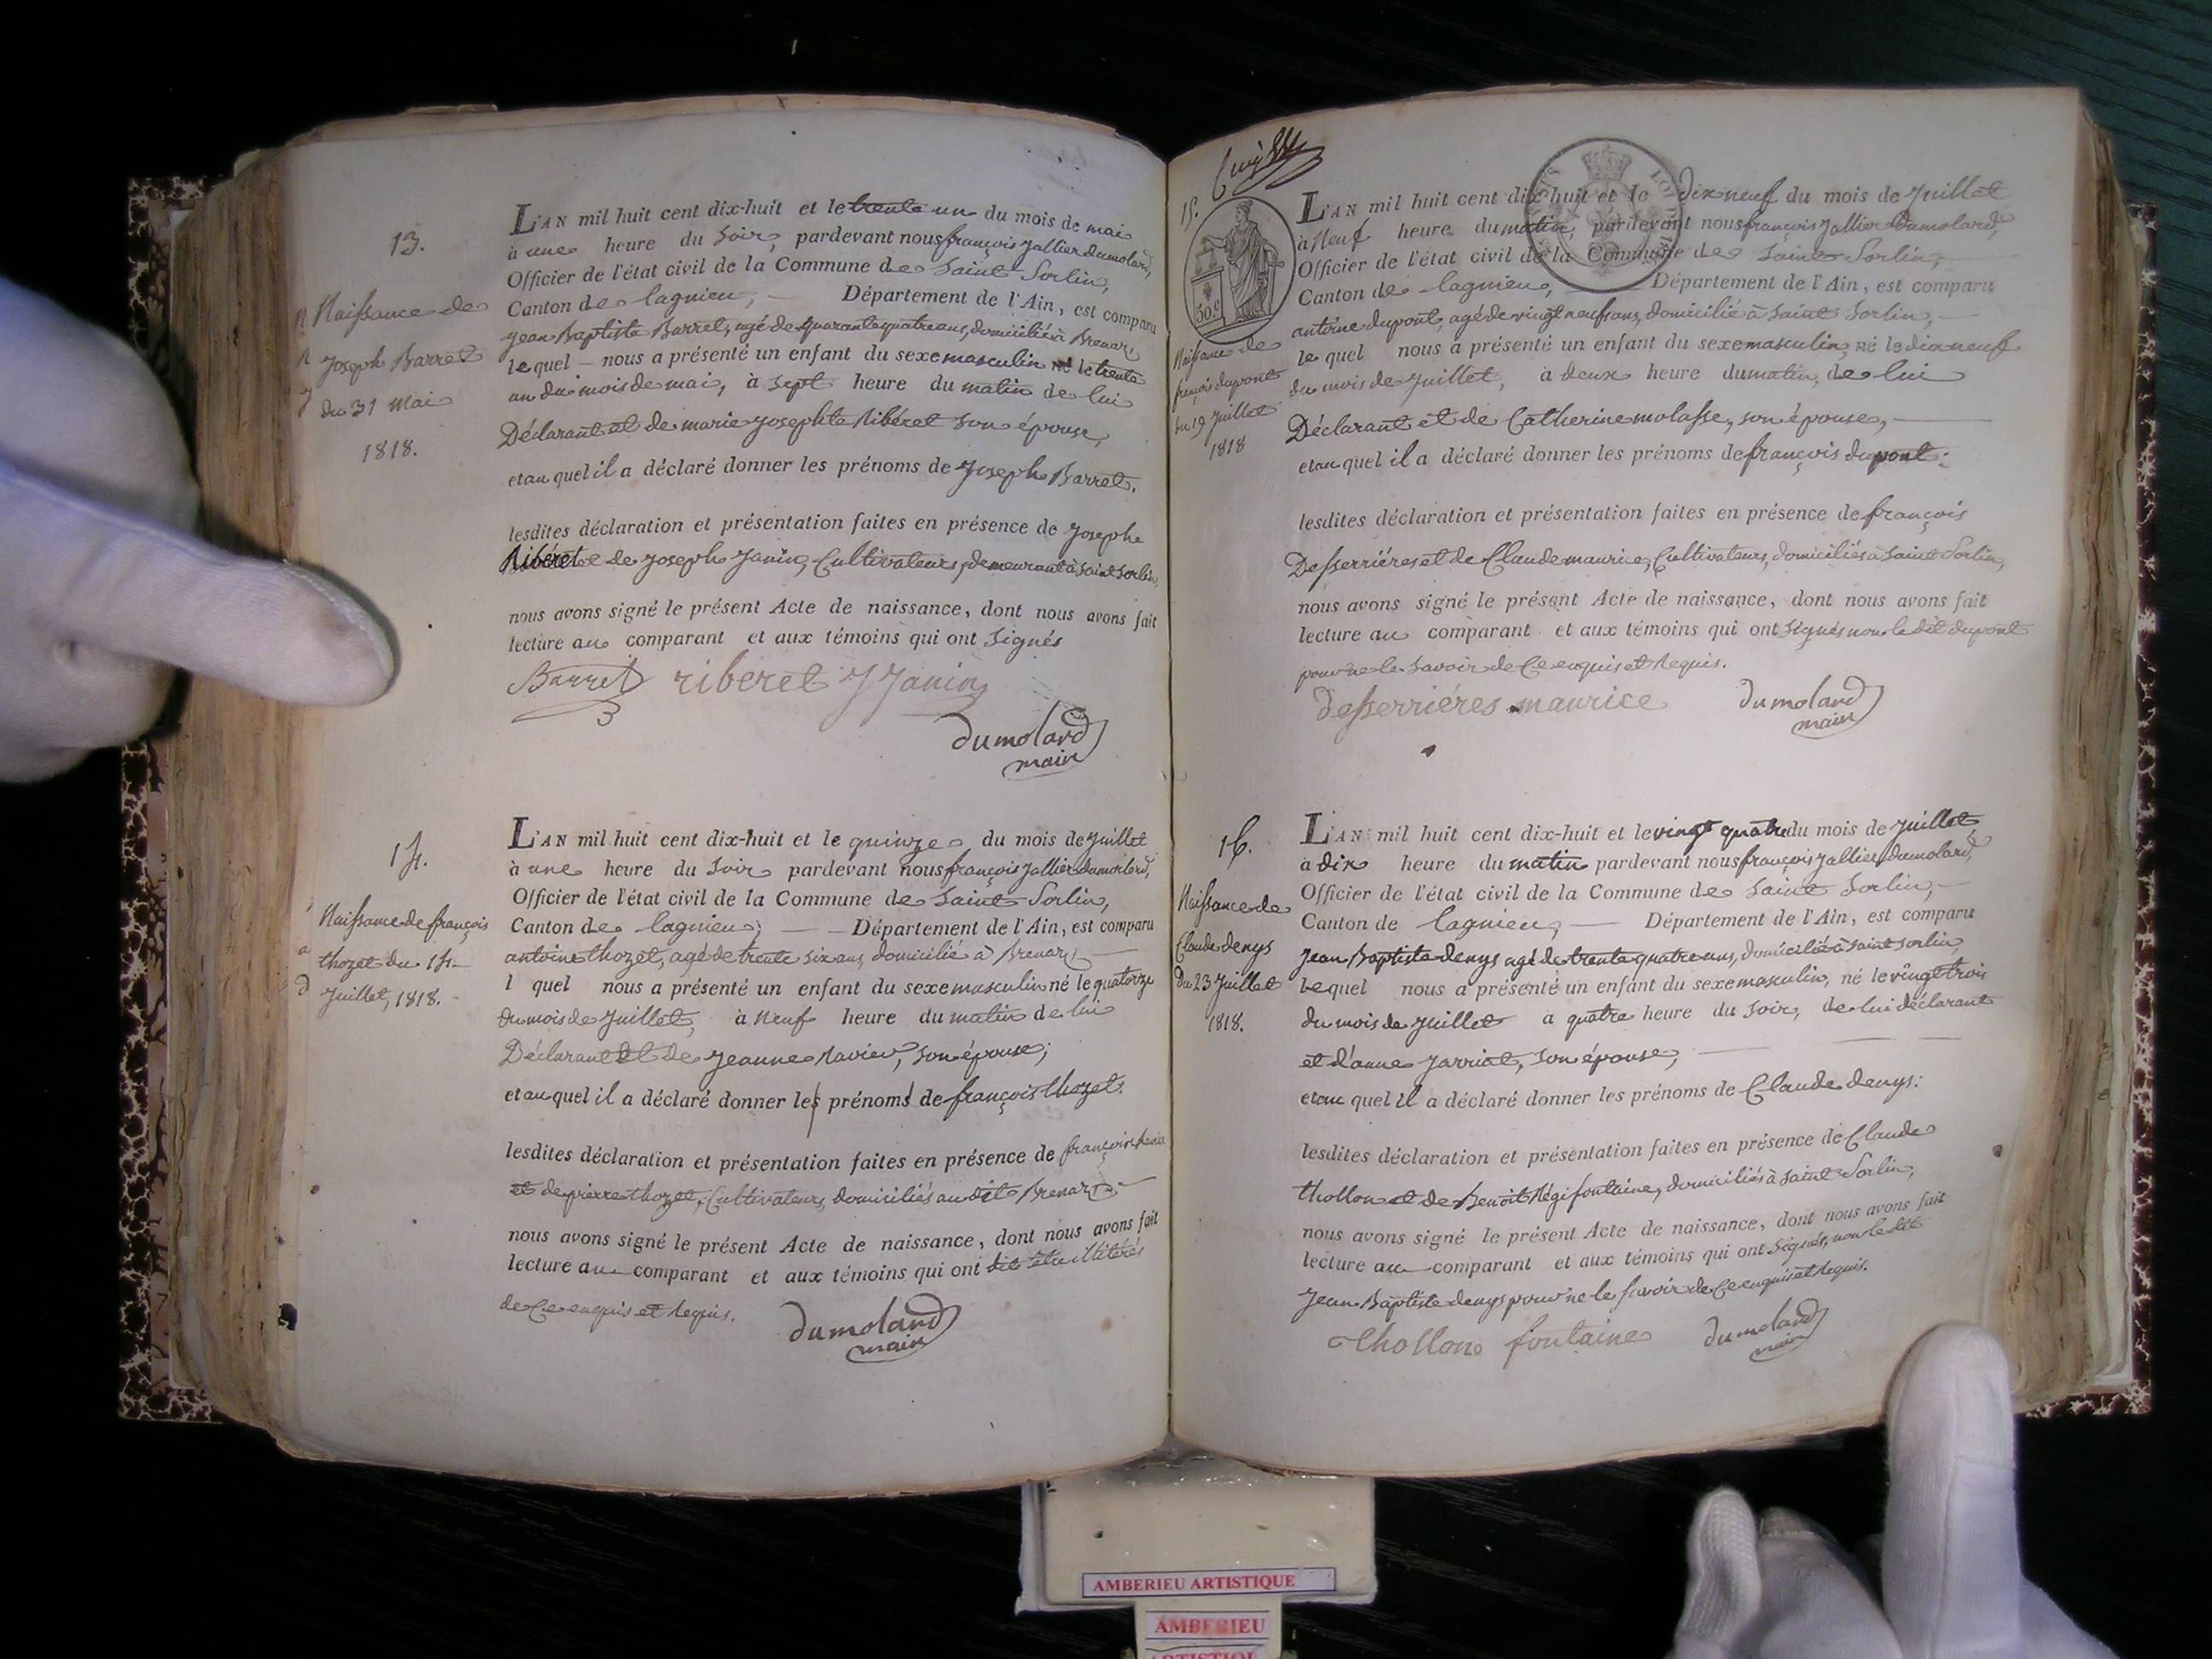 13.
Naissance de
Joseph Barret
du 31 Mai
1818.
L'AN mil huit cent dix-huit et le trente un du mois de mai
à une heure du Soir, pardevant nous françois Jallier Dumolard,
Officier de l'état civil de la Commune de Saint Sorlin,
Canton de lagnieu, — Département de l'Ain, est comparu
jean Baptiste Barret, agé de quarante quatre ans, domicilié à Brenaz
lequel — nous a présenté un enfant du sexe masculin né le trente
un du mois de mai, à sept heure du matin de lui
Déclarant et de marie josephte Ribéret son épouse,
et au quel il a déclaré donner les prénoms de Joseph Barret.
lesdites déclaration et présentation faites en présence de Josephe
Ribéret et de joseph Janin, Cultivateurs, demeurant à Saint Sorlin,
nous avons signé le présent Acte de naissance, dont nous avons fait
lecture au comparant et aux témoins qui ont Signés
Barret riberet J Janin
dumolard
maire
14.
Naissance de françois
thozet du 14.
Juillet, 1818.
L'AN mil huit cent dix-huit et le quinze du mois de Juillet
à une heure du Soir pardevant nous françois Jallier Dumolard,
Officier de l'état civil de la Commune de Saint Sorlin,
Canton de lagnieu, — Département de l'Ain, est comparu
antoine thozet, agé de trente six ans, domicilié à Brenaz
l quel nous a présenté un enfant du sexe masculin né le quatorze
du mois de Juillet, à neuf heure du matin de lui
Déclarant et de Jeanne Ravier, son épouse;
et au quel il a déclaré donner les prénoms de françois thozet.
lesdites déclaration et présentation faites en présence de françois
et de pierre thozet, Cultivateurs, domiciliés au dit Brenaz
nous avons signé le présent Acte de naissance, dont nous avons fait
lecture au comparant et aux témoins qui ont dit être illitérés
de Ce enquis et Requis.
dumolard
maire
15.
30.c
Naissance de
françois dupont
du 19 Juillet
1818
L'AN mil huit cent dix-huit et le Dix neuf du mois de Juillet
à Neuf heure du matin, pardevant nous françois Jallier Dumolard,
Officier de l'état civil de la Commune de Saint Sorlin,
Canton de lagnieu, — Département de l'Ain, est comparu
antoine dupont, agé de vingt neuf ans, domicilié à Saint Sorlin, —
le quel nous a présenté un enfant du sexe masculin, né le dix neuf
du mois de Juillet, à deux heure du matin, de lui
Déclarant et de Catherine molasse, son épouse, —
et au quel il a déclaré donner les prénoms de françois dupont:
lesdites déclaration et présentation faites en présence de françois
Desserriéres et de Claude maurice, Cultivateurs, domiciliés à Saint Sorlin,
nous avons signé le présent Acte de naissance, dont nous avons fait
lecture au comparant et aux témoins qui ont Signés non le dit dupont
pour ne le Savoir de Ce enquis et Requis.
desserriéres maurice dumolard
maire
16.
Naissance de
Claude denys
Du 23 Juillet
1818.
L'AN mil huit cent dix-huit et le vingt quatre du mois de Juillet
à dix heure du matin pardevant nous françois Jallier, dumolard,
Officier de l'état civil de la Commune de Saint Sorlin, —
Canton de lagnieu, — Département de l'Ain, est comparu
Jean Baptiste denys agé de trente quatre ans, domicilié à Saint Sorlin,
lequel nous a présenté un enfant du sexe masculin, né le vingt trois
du mois de Juillet à quatre heure du Soir, de lui déclarant
et d'anne Jarriat, son épouse, —
et au quel il a déclaré donner les prénoms de Claude denys:
lesdites déclaration et présentation faites en présence de Claude
thollon et de Benoit Régi fontaine, domiciliés à Saint Sorlin,
nous avons signé le présent Acte de naissance, dont nous avons fait
lecture au comparant et aux témoins qui ont Signés, non le dit
Jean Baptiste denys pour ne le Savoir de Ce enquis et Requis.
thollon fontaine dumolard
maire
AMBERIEU ARTISTIQUE
AMBERIEU
ARTISTIQUE